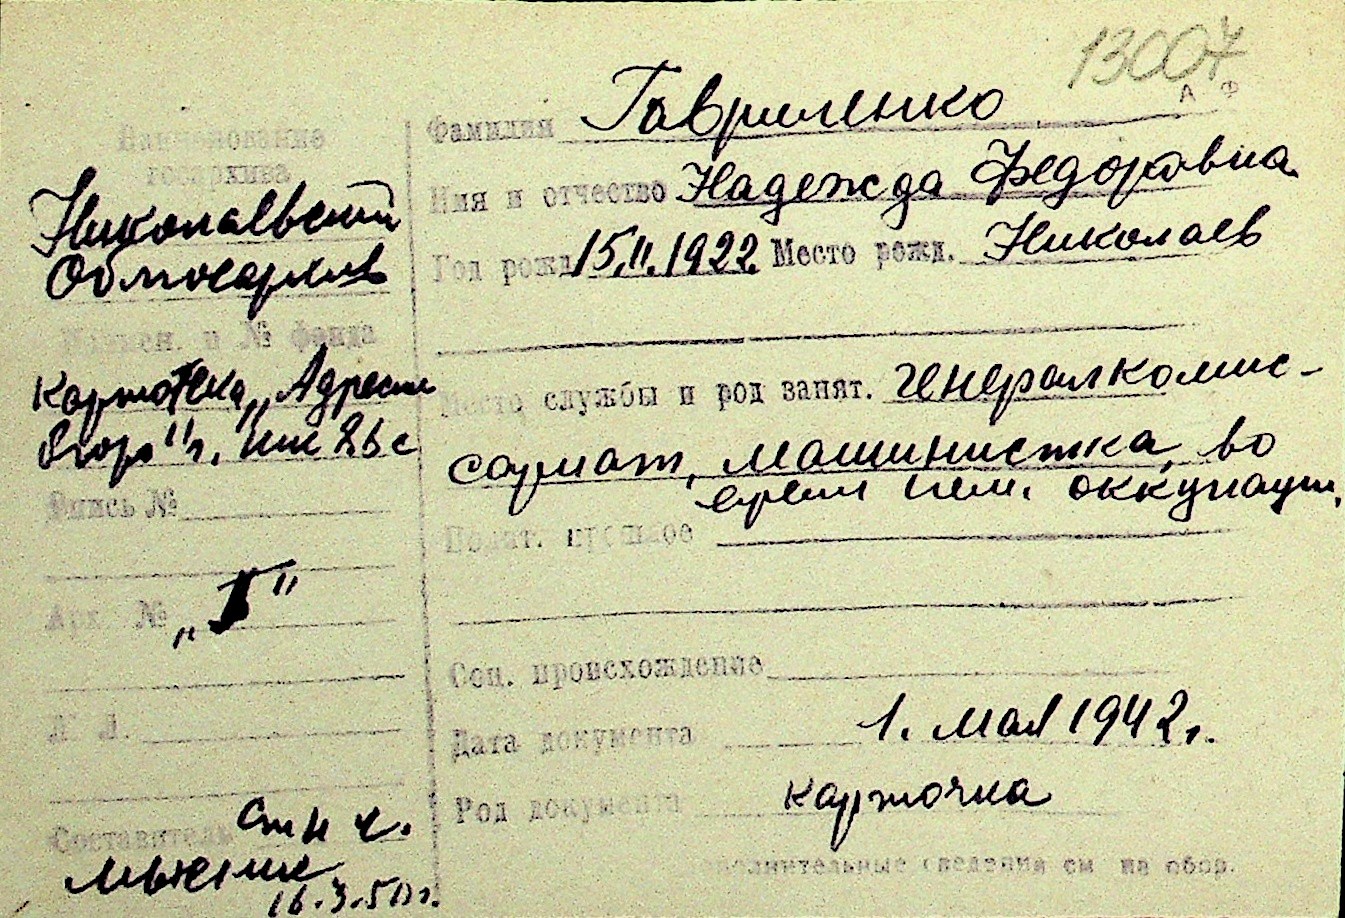 13007
А Ф
Наименование
госархива
Николаевский
Облгосархив
Наимен. и № фонда
Картотека „Адресн
бюро" г.
Опись №
Арх. № „Г"
Л. Л.
Составитель ст н с.
16.3.50 г.
Фамилия Гавриленко
Имя и отчество Надежда Федоровна
Год рожд 15.II.1922. Место рожд. Николаев
Место службы и род занят. генералкомис-
сариат, машинистка, во
время нем. оккупации.
Полит. прошлое
Соц. происхождение
Дата документа 1. мая 1942 г.
Род документа карточка
Дополнительные сведения см на обор.